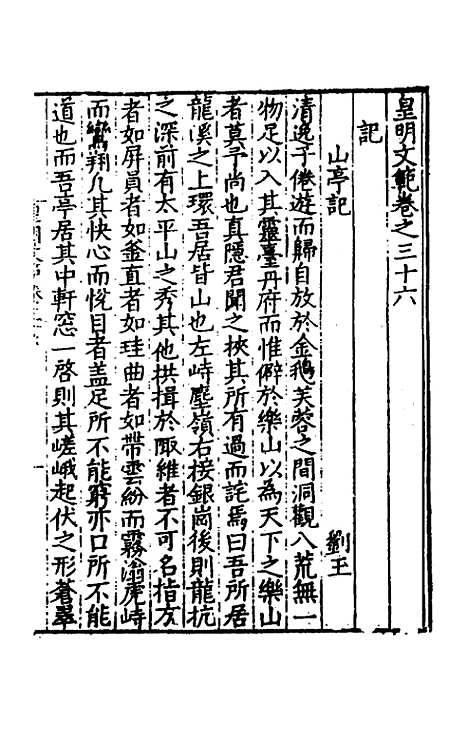 皇明文範卷之三十六
記
山亭記 劉玉
清逸子倦遊而歸自放於金鵝芙蓉之間洞觀八荒無一
物足以入其靈臺丹府而惟僻於樂山以為天下之樂山
者莫予尚也真隱君聞之挾其所有過而詫焉曰吾所居
龍溪之上環吾居皆山也左峙壓嶺右接銀崗後則龍抗
之深前有太平山之秀其他拱揖於陬維者不可名指方
者如屏員者如釜直者如珪曲者如帶雲紛而霧滃虎峙
而鸞翔凡其快心而悅目者盖足所不能窮亦口所不能
道也而吾亭居其中軒窓一啓則其嵯峨起伏之形蒼翠